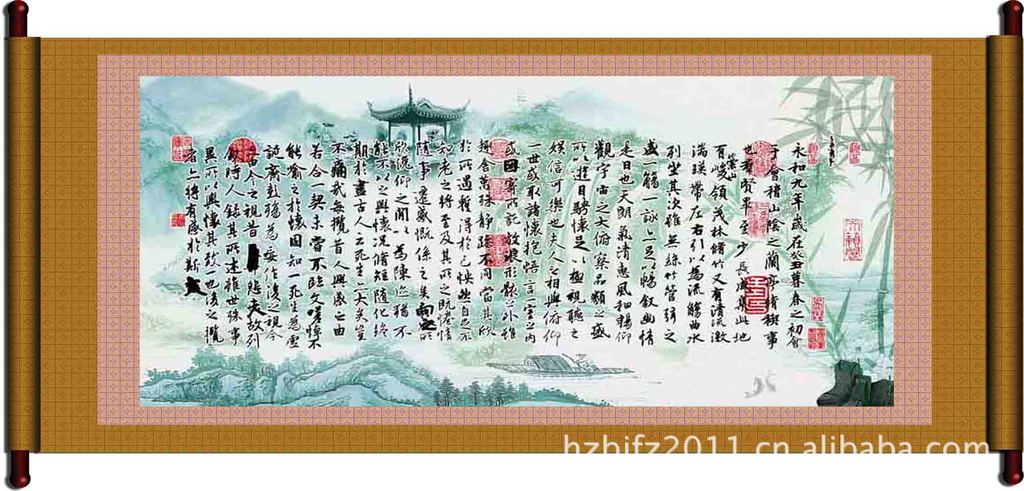 永和九年歲在癸丑暮春之初會
于會稽山陰之蘭亭脩稧事
也羣賢畢至少長咸集此地
有崇山峻領茂林脩竹又有清流激
湍暎帶左右引以為流觴曲水
列坐其次雖無絲竹管弦之
盛一觴一詠亦足以暢敘幽情
是日也天朗氣清惠風和暢仰
觀宇宙之大俯察品類之盛
所以遊目騁懷足以極視聽之
娛信可樂也夫人之相與俯仰
一世或取諸懷抱悟言一室之內
或因寄所託放浪形骸之外雖
趣舍萬殊靜躁不同當其欣
於所遇蹔得於己怏然自足不
知老之將至及其所之既惓情
隨事遷感慨係之矣向之所
欣俛仰之閒以為陳迹猶不
能不以之興懷況脩短隨化終
期於盡古人云死生亦大矣豈
不痛哉每攬昔人興感之由
若合一契未嘗不臨文嗟悼不
能喻之於懷固知一死生為虛
誕齊彭殤為妄作後之視今
亦由今之視昔悲夫故列
敘時人錄其所述雖世殊事
異所以興懷其致一也後之攬
者亦將有感於斯文
hzbjfz2011.cn.alibaba.com